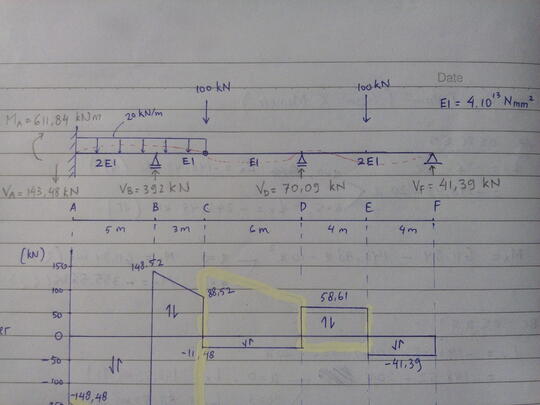 Date
100 kN
100 kN
EI = 4.10¹³ Nmm²
MA = 611,84 kNm
20 kN/m
2EI
EI
EI
2EI
VA = 143,48 kN
VB = 392 kN
VD = 70,09 kN
VF = 41,39 kN
A B C D E F
5 m 3 m 6 m 4 m 4 m
(kN)
150
148.52
100
88,52
58,61
50
0
-11,48
-50
-41,39
-100
-148,48